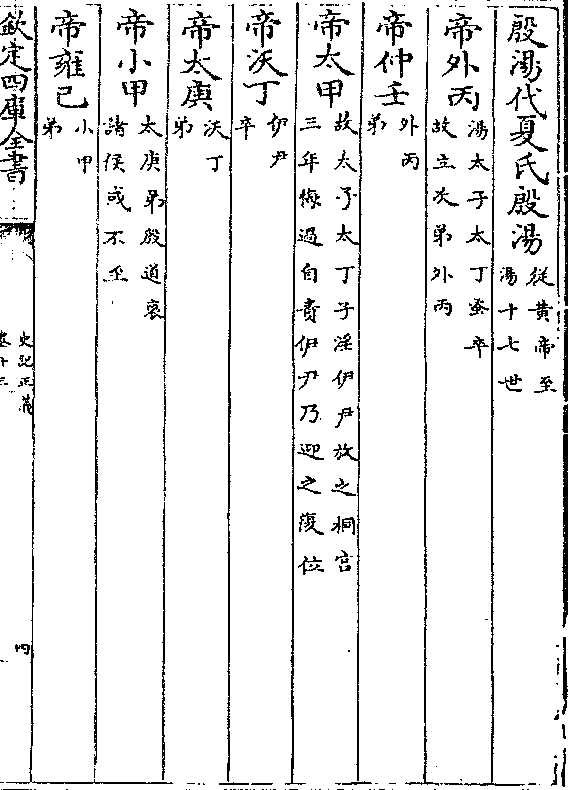 殷湯代夏氏殷湯從黄帝至湯十七世
帝外丙湯太子太丁蚤卒故立次弟外丙
帝仲壬外丙弟
帝太甲故太子太丁子淫伊尹放之桐宫三年悔過自責伊尹乃迎之復位
帝沃丁伊尹卒
帝太庚沃丁弟
帝小甲太庚弟殷道衰諸侯或不至
帝雍己小甲弟
欽定四庫全書
史記正義
卷十三
四